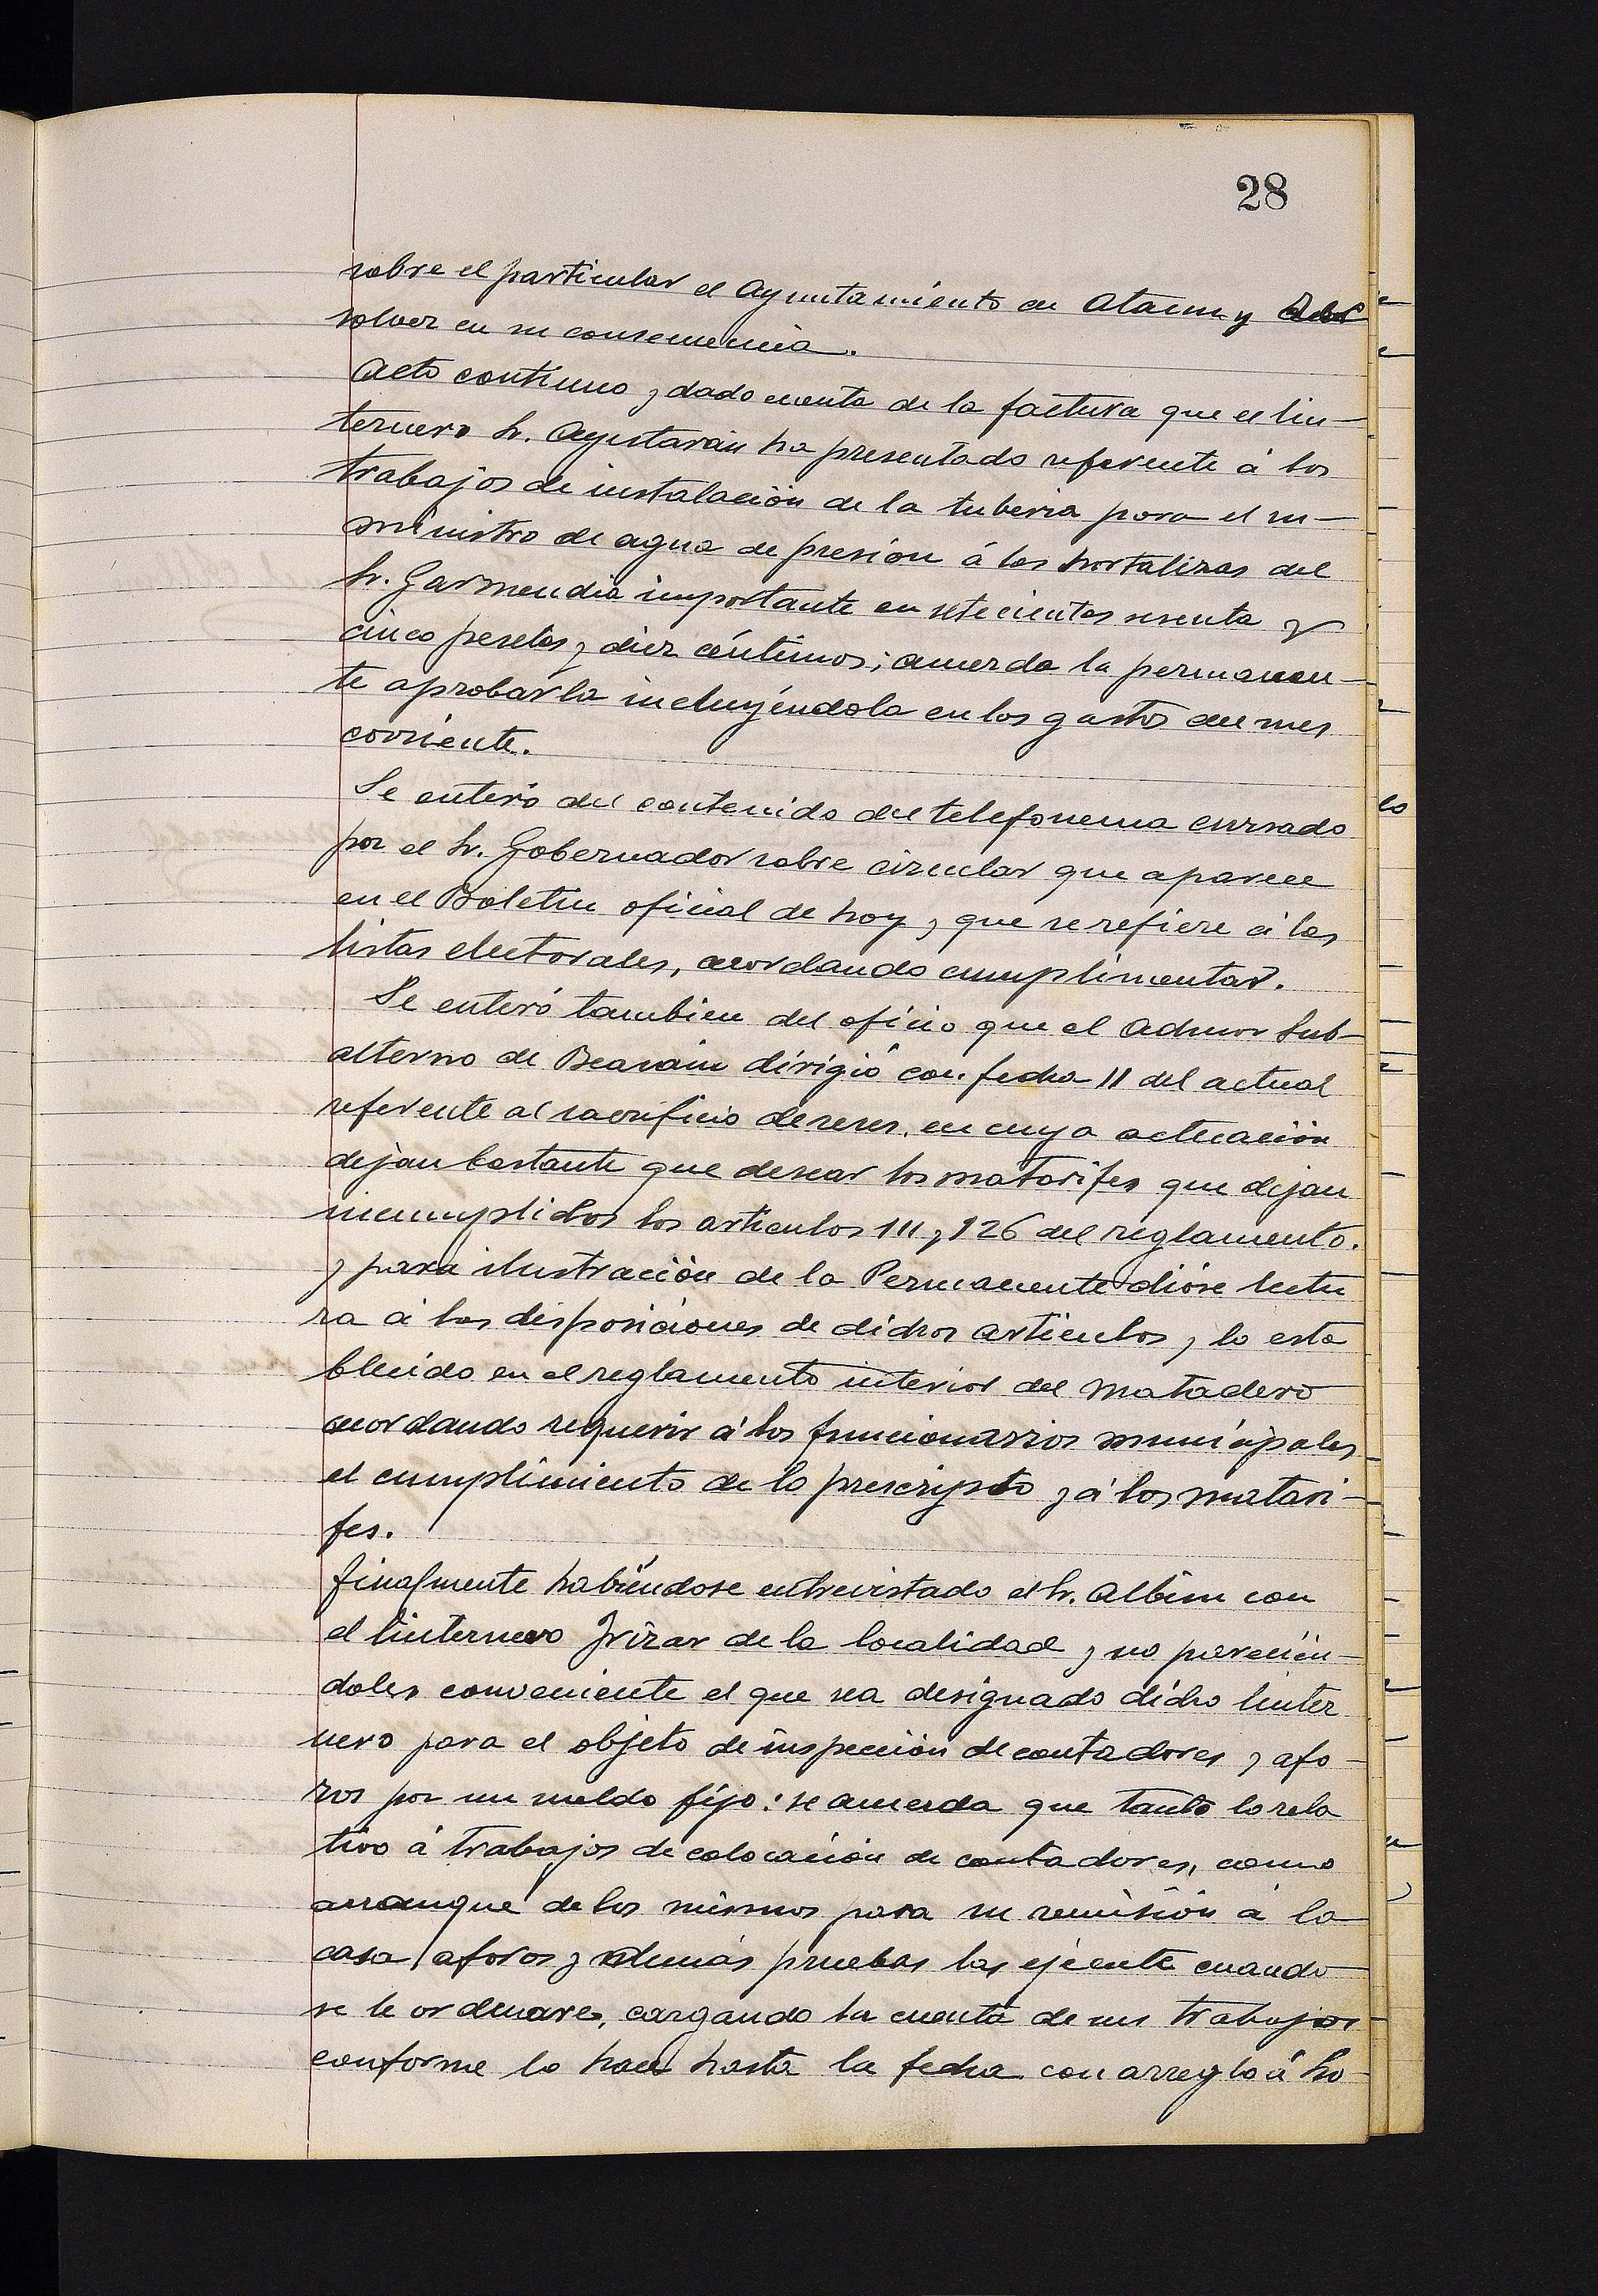 28
sobre el particular el Ayuntamiento de Ataun y
solver en su consecuencia.
Acto continuo y dado cuenta de la factura que el lin-
ternero Sr. Agustarán ha presentado referente á los
trabajos de instalación de la tuberia para el su-
ministro de agua de presión á las hortalizas del
Sr. Garmendia importante en setecientas sesenta y
cinco pesetas y diez céntimos; acuerda la permanen-
te aprobarla incluyéndola en los gastos del mes
corriente.
Se enteró del contenido del telefonema cursado
por el Sr. Gobernador sobre circular que aparece
en el Boletin oficial de hoy y que se refiere á las
listas electorales, acordando cumplimentar.
Se enteró tambien del oficio que el Admor Sub-
alterno de Beasain dirigió con fecha 11 del actual
referente al sacrificio de reses, en cuya actuación
dejan bastante que desear los matarifes que dejan
incumplidos los artículos 111 y 126 del reglamento.
y para ilustración de la Permanente dióse lectu
ra á las disposiciones de dichos artículos y lo esta
blecido en el reglamento interior del matadero
acordando requerir á los funcionarios municipales
el cumplimiento de lo prescripto y á los matari-
fes.
finalmente habiéndose entrevistado el Sr. Albisu con
el linternero Irízar de la localidad y no parecién-
doles conveniente el que sea designado dicho linter
nero para el objeto de inspección de contadores y afo-
ros por un sueldo fijo: se acuerda que tanto lo rela
tivo á trabajos de colocación de contadores, como
arranque de los mismos para su remisión á la
casa, aforos y demás pruebas las ejecute cuando
se le ordenare, cargando la cuenta de sus trabajos
conforme lo hace hasta la fecha con arreglo á ho-
lo